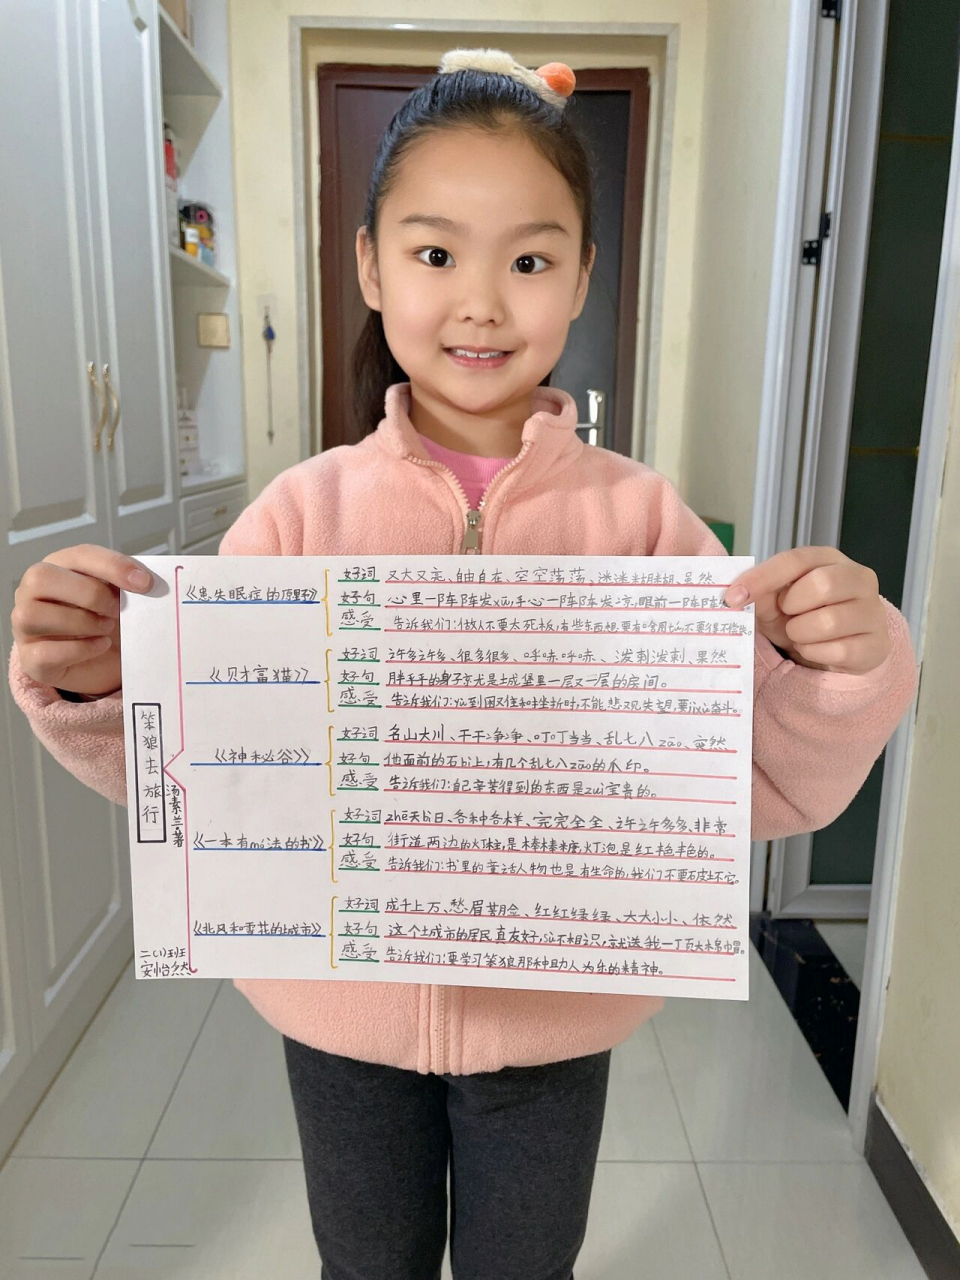 笨狼去旅行
汤素兰著
二(1)班
安怡然
《患失眠症的原野》
好词 又大又亮、自由自在、空空荡荡、迷迷糊糊、虽然
好句 心里一阵阵发xū,手心一阵阵发凉,眼前一阵阵发
感受 告诉我们:做人不要太死板,有些东西想要有啥用
《财富猫》
好词 许多许多、很多很多、呼哧呼哧、泼剌泼剌、果然
好句 胖乎乎的身子就是城堡里一层又一层的房间。
感受 告诉我们:yù到困难和挫折时,不能悲观失望,要jìxù奋斗。
《神秘谷》
好词 名山大川、干干净净、叮叮当当、乱七八zāo、突然
好句 他面前的石头上,有几个乱七八zāo的爪印。
感受 告诉我们:自己辛苦得到的东西是zuì宝贵的。
《一本有mó法的书》
好词 zhē天蔽日、各种各样、完完全全、许许多多、非常
好句 街道两边的灯柱是棒棒糖,灯泡是红艳艳的。
感受 告诉我们:书里的童话人物也是有生命的,我们不要破坏它。
《北风和雪花的城市》
好词 成千上万、愁眉苦脸、红红绿绿、大大小小、依然
好句 这个城市的居民真友好,sù不相识,就送我一顶大棉帽。
感受 告诉我们:要学习笨狼那种助人为乐的精神。